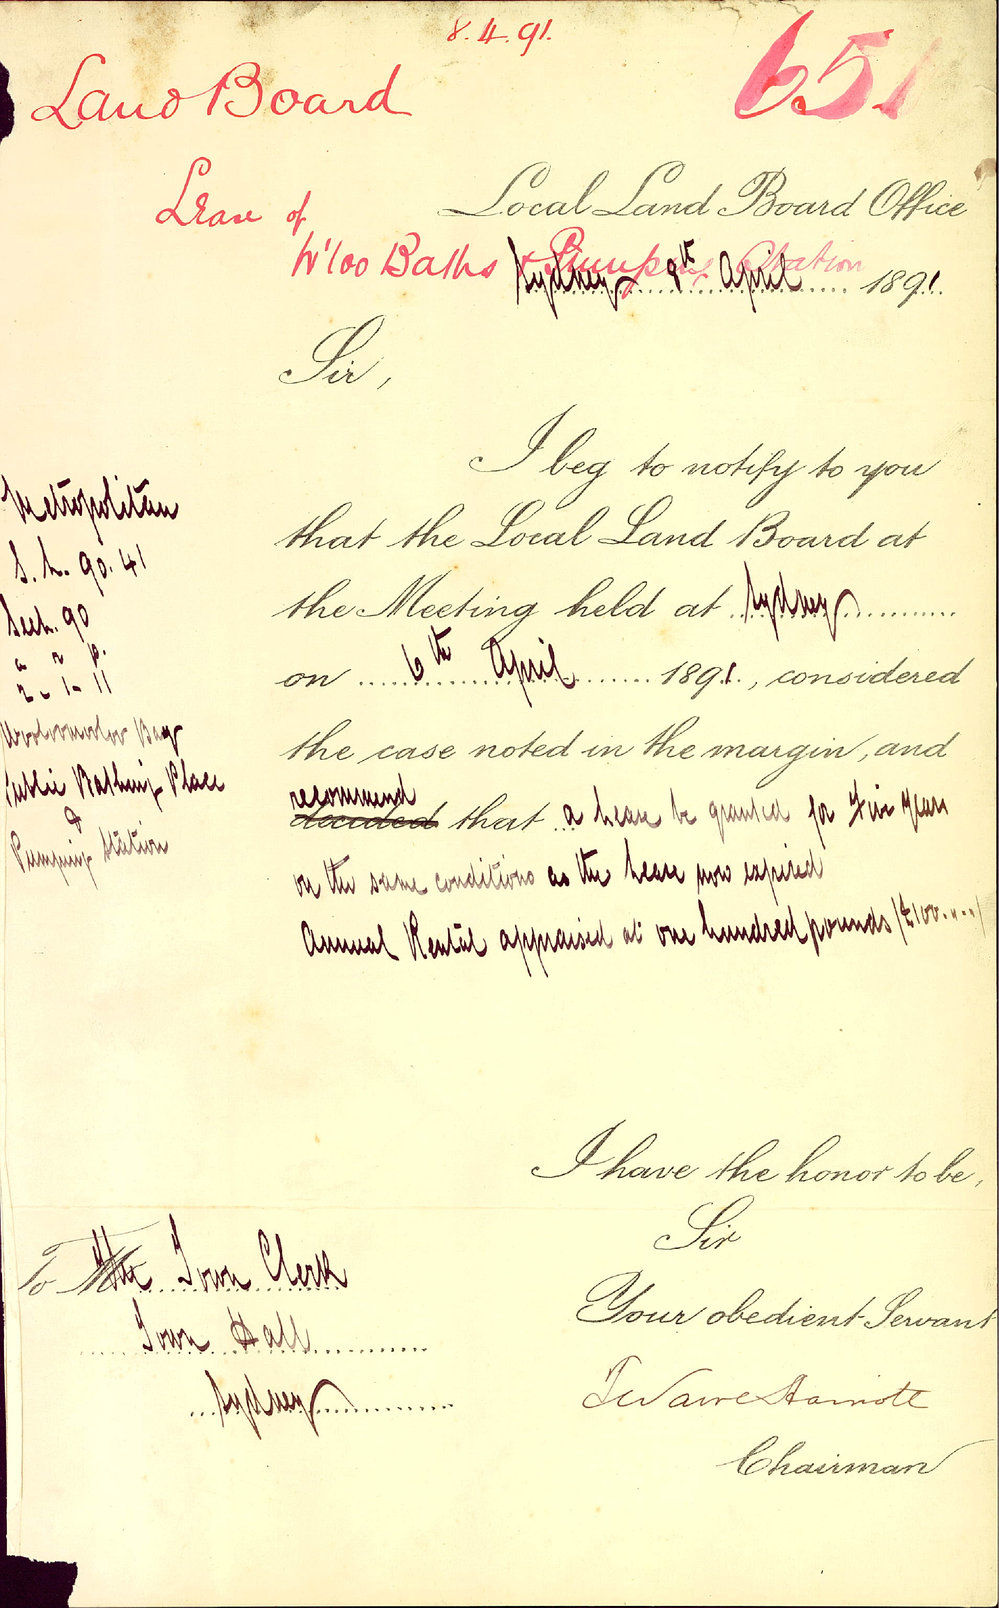 8.4.91.
651
Land Board
Lease of
W'loo Baths & Pumping Station
Local Land Board Office
Sydney 8th April 1891.
Sir,
I beg to notify to you
that the Local Land Board at
the Meeting held at Sydney
on 6th April 1891, considered
the case noted in the margin, and
recommend
decided that a Lease be granted for Five Years
on the same conditions as the Lease now expired
Annual Rental appraised at one hundred pounds (£100.".")
Metropolitan
S.L. 90.41
Sect. 90
a r p.
2-1-11
Woolloomooloo Bay
Public Bathing Place
&
Pumping Station
I have the honor to be,
Sir
Your obedient Servant
Chairman
To The Town Clerk
Town Hall
Sydney